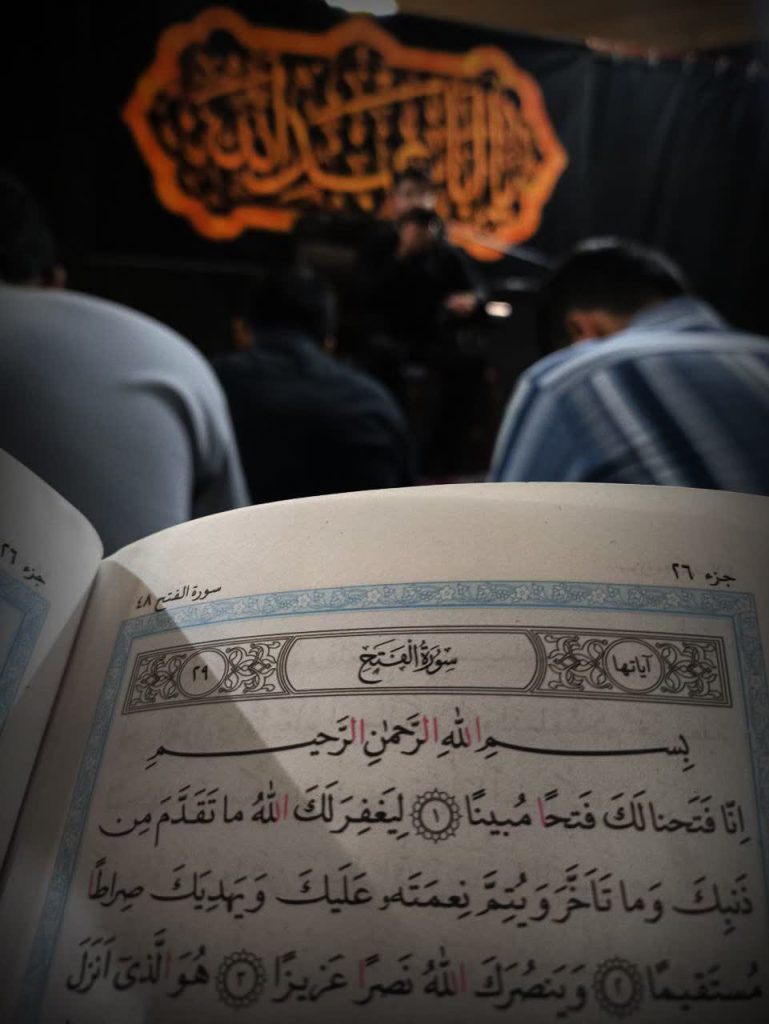 يا ابا عبد الله
جزء ٢٦
جزء ٢٦
سورة الفتح ٤٨
آیاتها
سُورَةُ الْفَتَحِ
٢٩
بِسمِ اللهِ الرَّحمٰنِ الرَّحيمِ
اِنّا فَتَحنا لَكَ فَتحًا مُبينًا ﴿١﴾ لِيَغفِرَ لَكَ اللهُ ما تَقَدَّمَ مِن
ذَنبِكَ وَما تَاَخَّرَ وَيُتِمَّ نِعمَتَهو عَلَيكَ وَيَهدِيَكَ صِراطًا
مُستَقيمًا ﴿٢﴾ وَيَنصُرَكَ اللهُ نَصرًا عَزيزًا ﴿٣﴾ هُوَ الَّذى اَنزَلَ